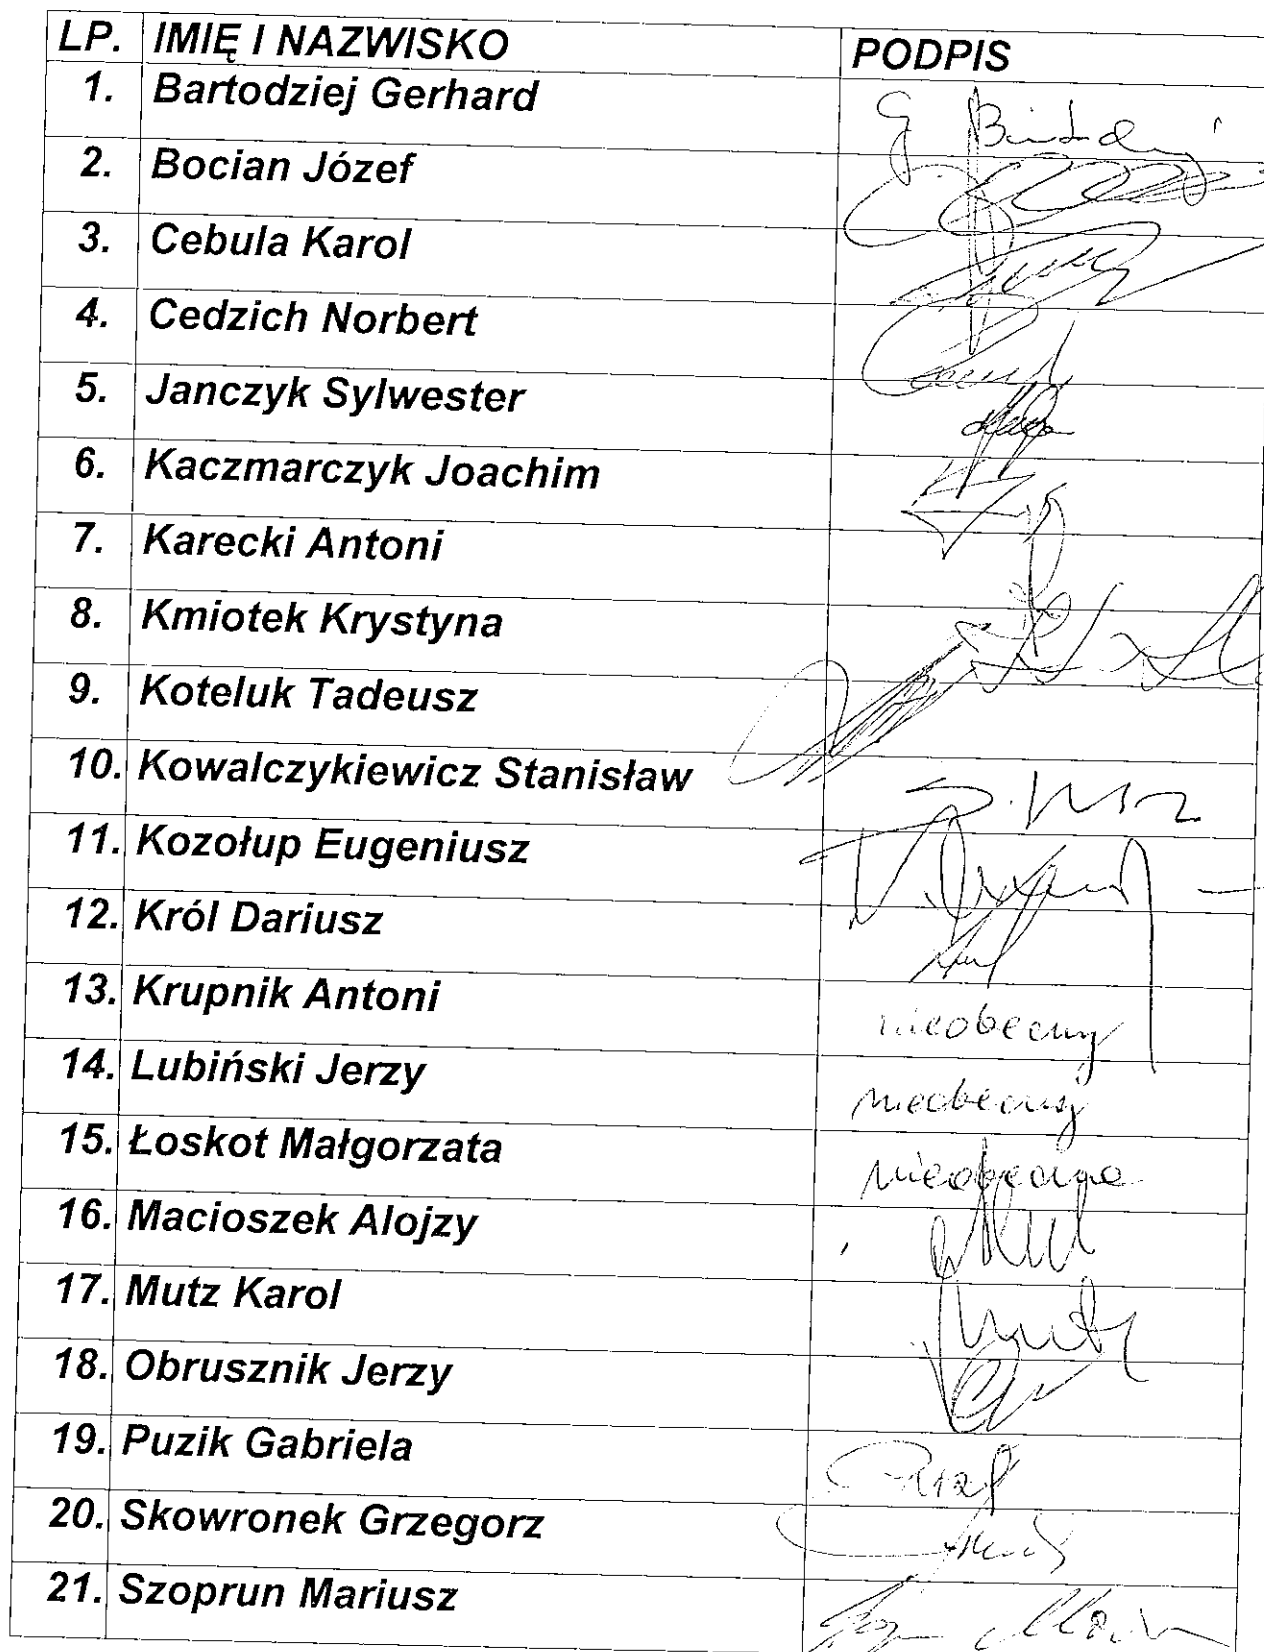 LP. IMIĘ I NAZWISKO PODPIS
1. Bartodziej Gerhard
2. Bocian Józef
3. Cebula Karol
4. Cedzich Norbert
5. Janczyk Sylwester
6. Kaczmarczyk Joachim
7. Karecki Antoni
8. Kmiotek Krystyna
9. Koteluk Tadeusz
10. Kowalczykiewicz Stanisław
11. Kozołup Eugeniusz
12. Król Dariusz
13. Krupnik Antoni nieobecny
14. Lubiński Jerzy nieobecny
15. Łoskot Małgorzata nieobecna
16. Macioszek Alojzy
17. Mutz Karol
18. Obrusznik Jerzy
19. Puzik Gabriela
20. Skowronek Grzegorz
21. Szoprun Mariusz